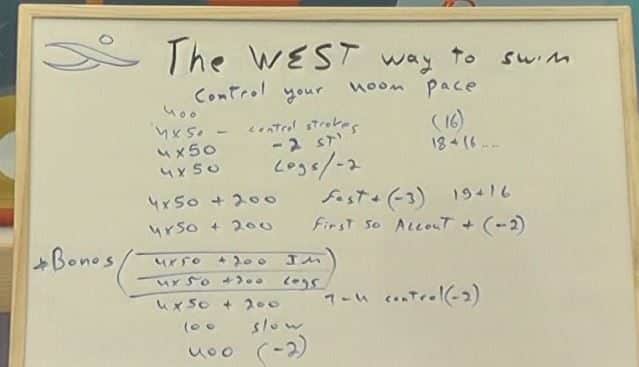 The WEST way to swim
Control your 400m pace
400
4x50 - control strokes (16)
4x50 -2 ST' 18+16 ...
4x50 Legs/-2
4x50 + 200 Fast + (-3) 19+16
4x50 + 200 First 50 Accout + (-2)
*Bonos (4x50 + 200 IM)
4x50 + 200 Legs
4x50 + 200 control (-2)
100 slow
400 (-2)